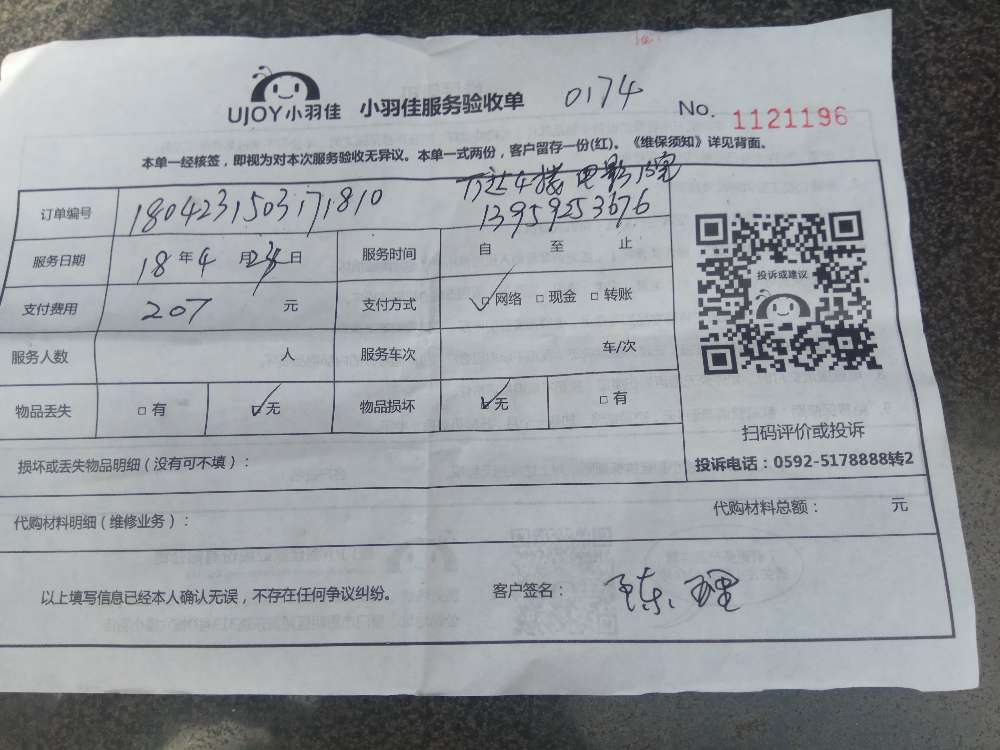 UJOY小羽佳 小羽佳服务验收单 0174 No. 1121196
本单一经核签，即视为对本次服务验收无异议。本单一式两份，客户留存一份(红)。《维保须知》详见背面。
万达4楼电影院
订单编号 1804231503171810 13959253676
服务日期 18年4月24日 服务时间 自 至 止
支付费用 207 元 支付方式 ☑网络 □现金 □转账
服务人数 人 服务车次 车/次
物品丢失 □有 ☑无 物品损坏 ☑无 □有
投诉或建议
扫码评价或投诉
投诉电话：0592-5178888转2
损坏或丢失物品明细(没有可不填)：
代购材料明细(维修业务)： 代购材料总额： 元
以上填写信息已经本人确认无误，不存在任何争议纠纷。 客户签名：